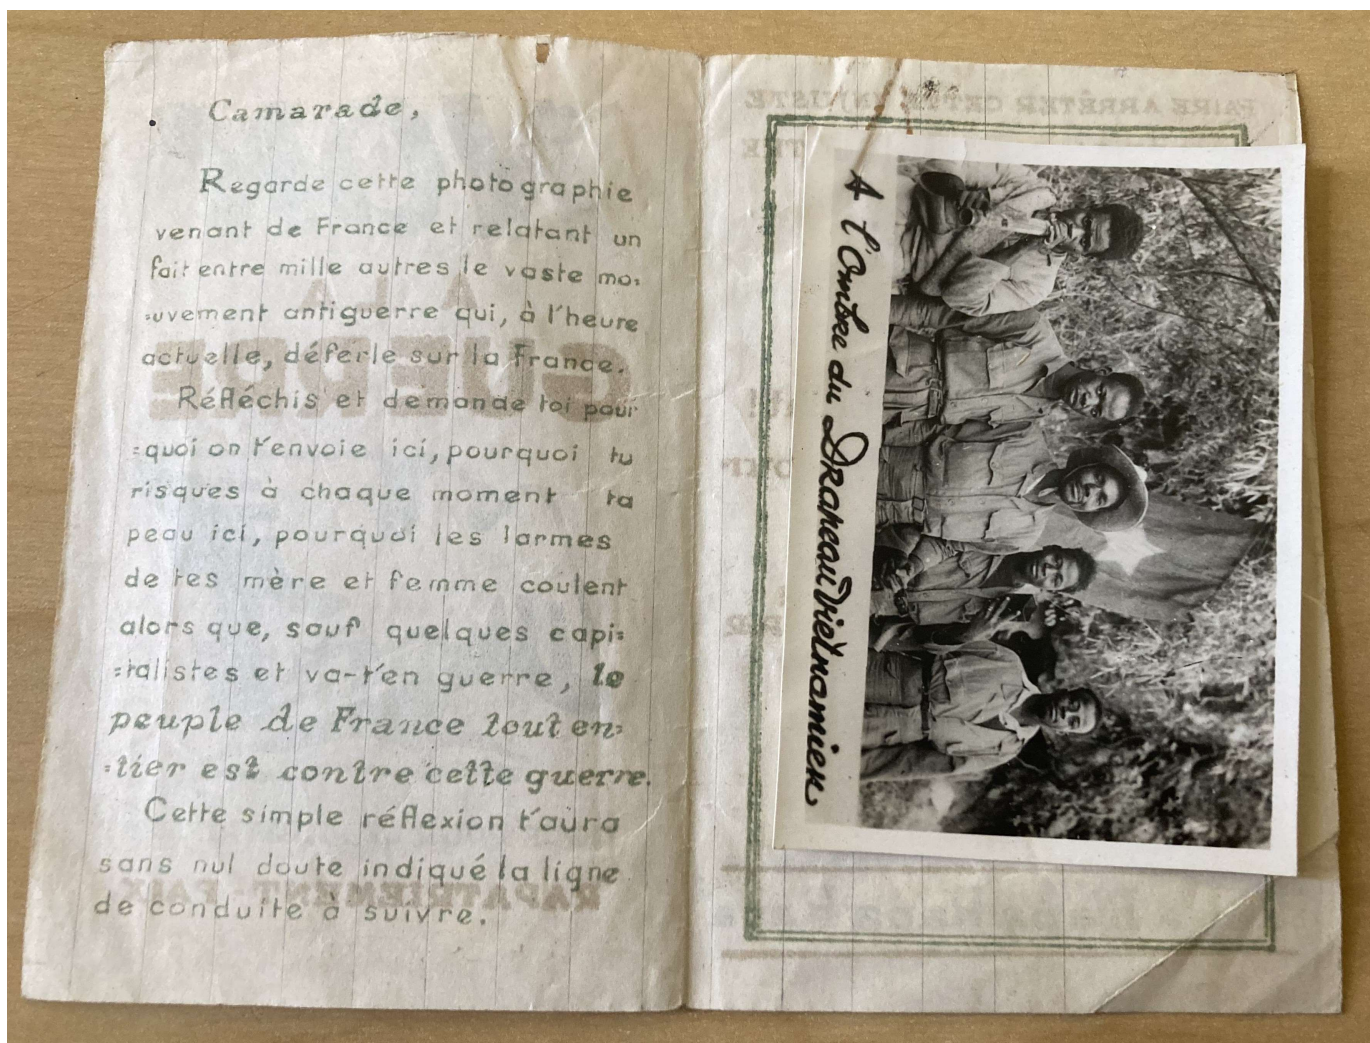 Camarade,
Regarde cette photographie
venant de France et relatant un
fait entre mille autres le vaste mo:
:uvement antiguerre qui, à l'heure
actuelle, déferle sur la France.
Réfléchis et demande toi pour
:quoi on t'envoie ici, pourquoi tu
risques à chaque moment ta
peau ici, pourquoi les larmes
de tes mère et femme coulent
alors que, sauf quelques capi:
:talistes et va-t'en guerre, le
peuple de France tout en:
:tier est contre cette guerre.
Cette simple réflexion t'aura
sans nul doute indiqué la ligne
de conduite à suivre.
A LA
GUERRE
RAPATRIEMENT PAIX
FAIRE ARRÊTER CETTE INJUSTE
A l'Ombre du Drapeau Vietnamien